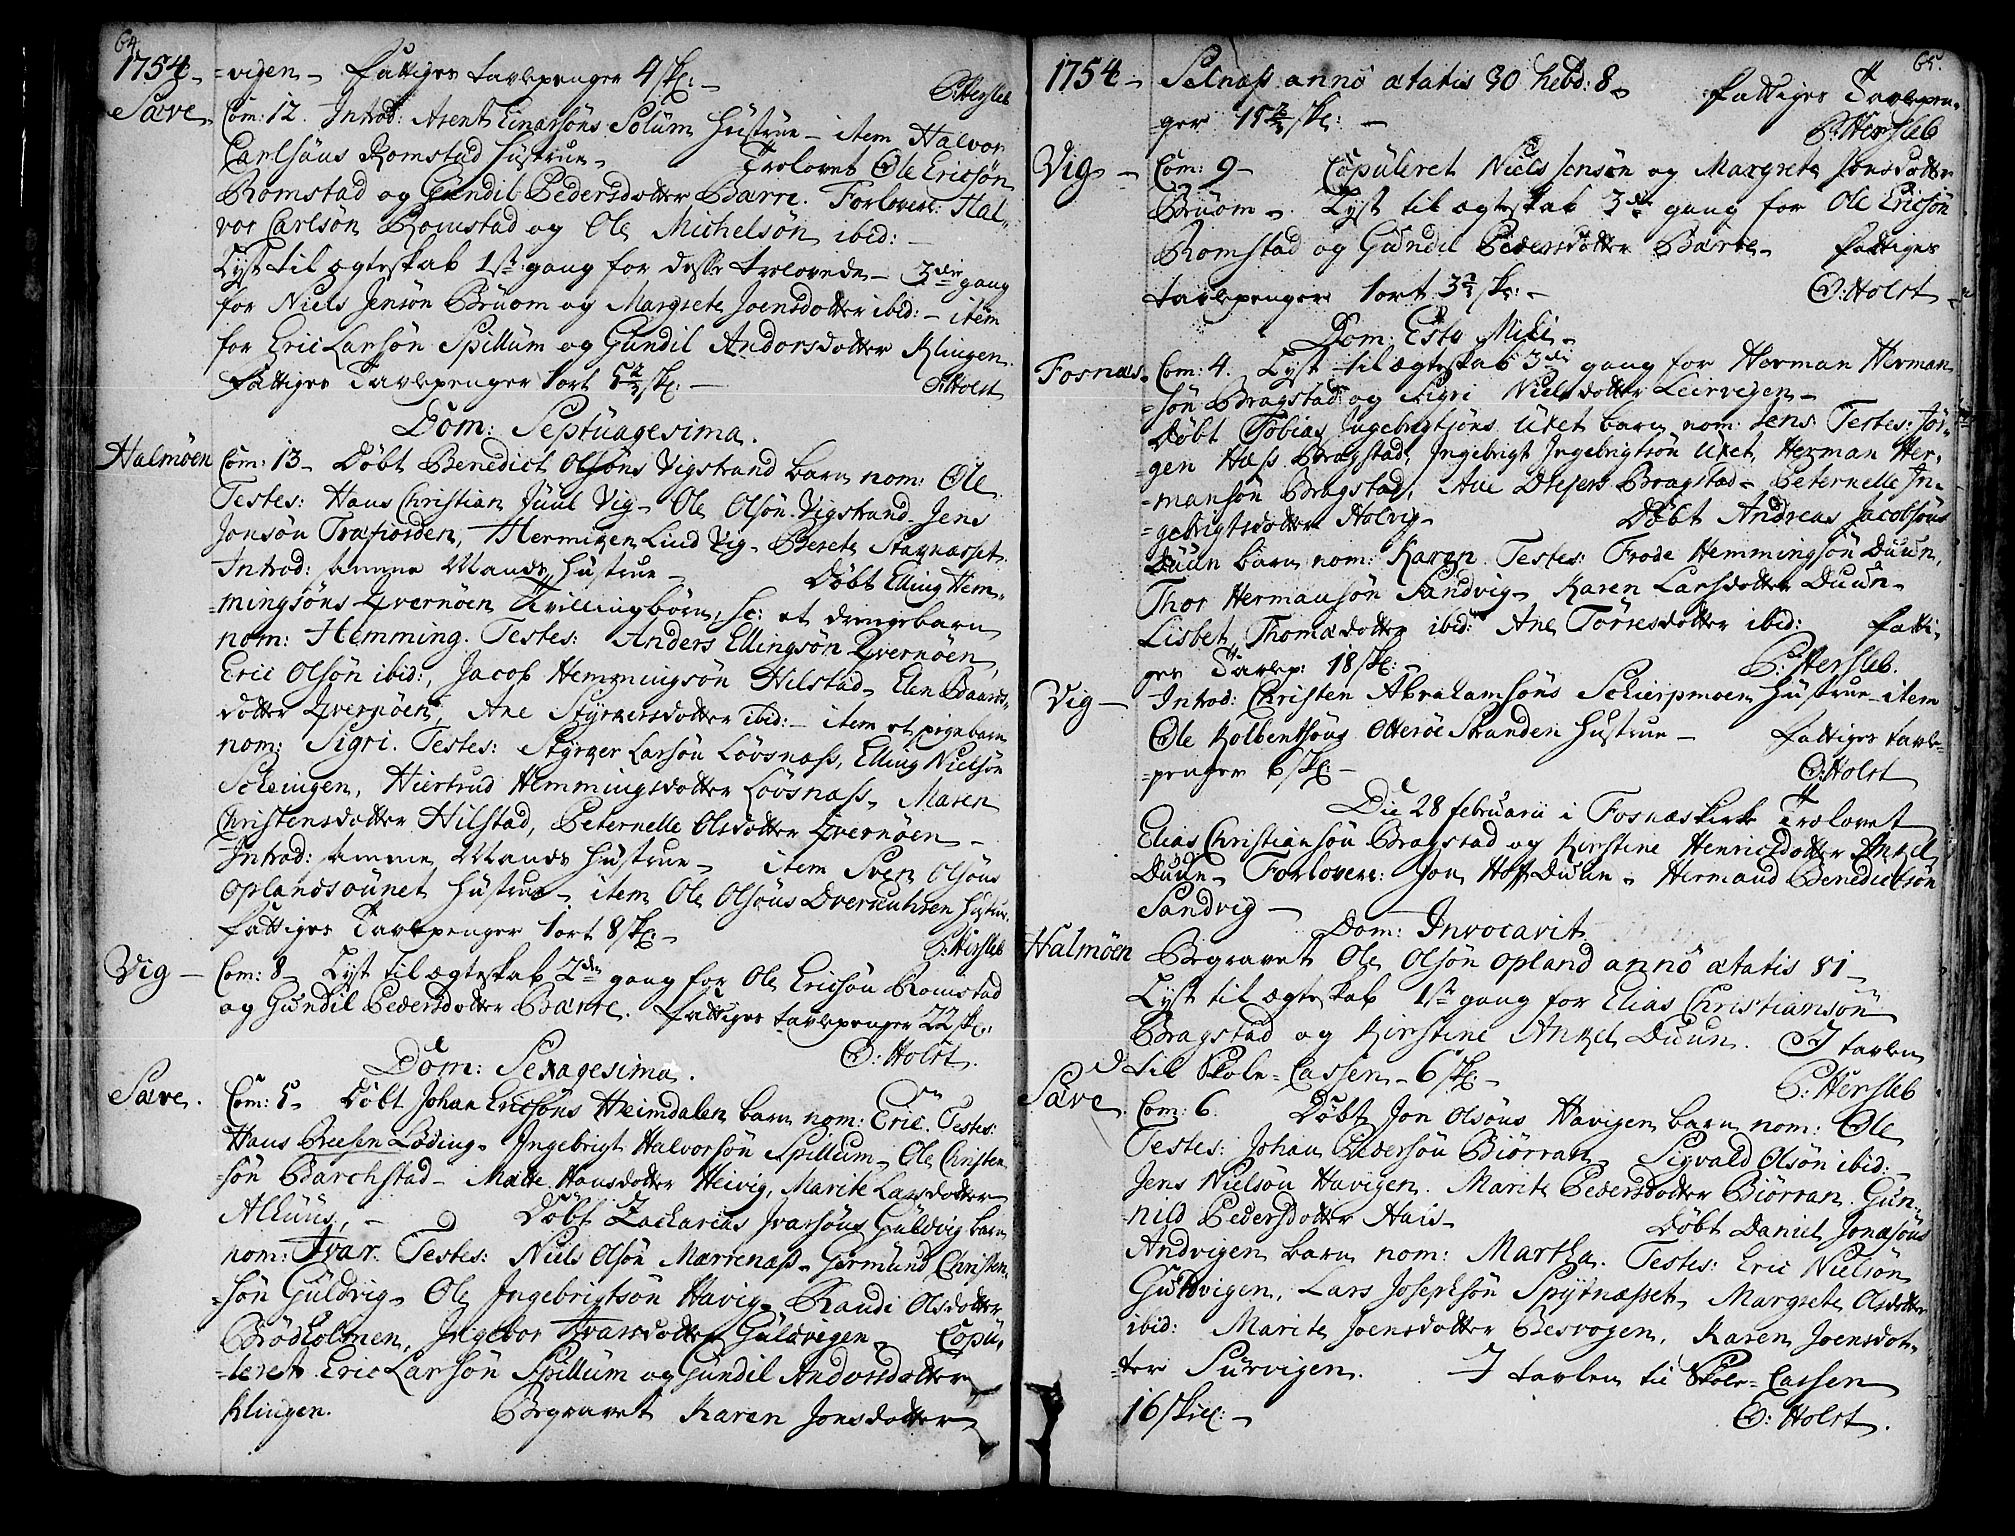 64.
1754.
=vigen. fattiges tavlepenger 4 sk: –
P: Hersleb
Sæve.
Com: 12. Introd: Arent Einarsöns Solum Hustrue – item Halvor
Carlsöns Romstad Hustrue. Trolovet Ole Ericsön
Romstad og Gundil Pedersdotter Barre. Forlovere: Hal-
vor Carlsön Romstad og Ole Michelsön ibid: –
Lyst til ægteskab 1ste gang for disse trolovede – 3die gang
for Niels Jensön Brüom og Margrete Joensdotter ibid: – item
for Eric Larsön Spillum og Gundil Andorsdotter Klingen.
fattiges Tavlepenger 1 ort 5½ sk: –
O: Holst
Dom: Septuagesima.
Halmöen
Com: 13 – Döbt Benedict Olsöns Vigstrand barn nom: Ole
Testes: Hans Christian Juul Vig – Ole Olsön Vigstrand – Jens
Jonsön Trafiorden, Hermitzen Lind Vig – Berete Stavnæsset.
Introd: samme Mands Hustrue – Döbt Elling Hem-
=mingsöns Qvernöen Tvillingbörn, sc: et drengebarn
nom: Hemming. Testes: Anders Ellingsön Qvernöen,
Eric Olsön ibid:, Jacob Hemmingsön Hilstad, Elen Baards-
dotter Qvernöen, Ane Styrkersdotter ibid: – item et pigebarn
nom: Sigri. Testes: Styrger Larsön Lövsnæss, Elling Nielsön
Scheingen, Hiertrud Hemmingsdotter Lövsnæss, Maren
Christensdotter Hilstad, Peternelle Olsdotter Qvernöen –
Introd: samme Mands Hustrue – item Sven Olsöns
Oplandsöunet Hustrue – item Ole Olsöns Hustrue.
fattiges Tavlepenger 1 ort 8 sk: –
P: Hersleb
Vig –
Com: 8 – Lyst til ægteskab 2den gang for Ole Ericsön Romstad
og Gundil Pedersdotter Barre. fattiges tavlepenger 22 sk:
O: Holst.
Dom: Sexagesima.
Sæve.
Com: 5 – Döbt Johan Ericsöns Heimdalen barn nom: Eric. Testes:
Hans Breesen Löding – Ingebrigt Halvorsön Spillum – Ole Christen
sön Barchstad – Matte Hansdotter Heivig, Marite Larsdotter
Alhuus, – Döbt Zacharias Ivarsöns Guldvig barn
nom: Ivar. Testes: Niels Olsön Marrenæss – Germund Christen-
=sön Guldvig – Ole Ingebrigtsön Havig – Randi Olsdotter
Brödholmen, Ingebor Ivarsdotter Guldvigen – Copu-
=leret Eric Larsön Spillum og Gundil Andorsdotter
Klingen. Begravet Karen Jonsdotter
65.
1754 –
Selnæss anno ætatis 30 hebd: 8 – fattiges Tavlepen-
=ger 15½ sk: –
P: Hersleb
Vig –
Com: 9 – Copuleret Niels Jensön og Margrete Jonsdotter
Brüom – Lyst til ægteskab 3die gang for Ole Ericsön
Romstad og Gundil Pedersdotter Barre – fattiges
tavlepenger 1 ort 3½ sk: –
O: Holst –
Dom: Esto Mihi –
Fosnæs.
Com: 4. Lyst til ægteskab 3die gang for Herman Herman
=sön Bragstad og Sigri Nielsdotter Leirvigen –
Döbt Tobias Ingebrigtsöns Utvet barn nom: Jens. Testes: Jör-
=gen Hass Bragstad, Ingebrigt Ingebrigtsön Utvet, Herman Her-
=mansön Bragstad, Ane Bragstad – Peternelle In-
=gebrigtsdotter Holvig – Döbt Andreas Jacobsöns
Duun barn nom: Karen. Testes: Frode Hemmingsön Duun,
Thor Hermansön Sandvig – Karen Larsdotter Duun –
Lisbet Thomædotter ibid: Ane Törresdotter ibid: fatti-
ges Tavlep: 18 sk: –
P: Hersleb.
Vig –
Introd: Christen Abrahamsöns Schierpmoen Hustrue – item
Ole Kolbentsöns Otteröe Stranden Hustrue – fattiges tavle-
=penger 6 sk: –
O: Holst
Die 28 februarii i Fosnæs kirke Trolovet
Elias Christiansön Bragstad og Kirstine Henricsdotter Ankel
Duun – Forlovere: Jon Hoff Duun – Hermand Benedictsön
Sandvig –
Dom: Invocavit
Halmöen
Begravet Ole Olsön Opland anno ætatis 81 –
Lyst til ægteskab 1ste gang for Elias Christiansön
Bragstad og Kirstine Ankel Duun. I tavlen
til Skole-Cassen – 6 sk: –
P: Hersleb
Sæve.
Com: 6. Döbt Jon Olsöns Havigen barn nom: Ole
Testes: Johan Pedersön Biörran – Sigvald Olsön ibid: –
Jens Nielsön Havigen. Marite Pedersdotter Biörran. Gun-
=nild Pedersdotter Hals – Döbt Daniel Jonæsöns
Andvigen barn nom: Martha. Testes: Eric Nielsön
Guldvigen, Lars Josephsön Spytnæsset, Margrete Olsdotter
ibid: Marite Joensdotter Besvogen, Karen Joensdot-
=ter Survigen. I tavlen til Skole-Cassen
16 skill: –
O: Holst.